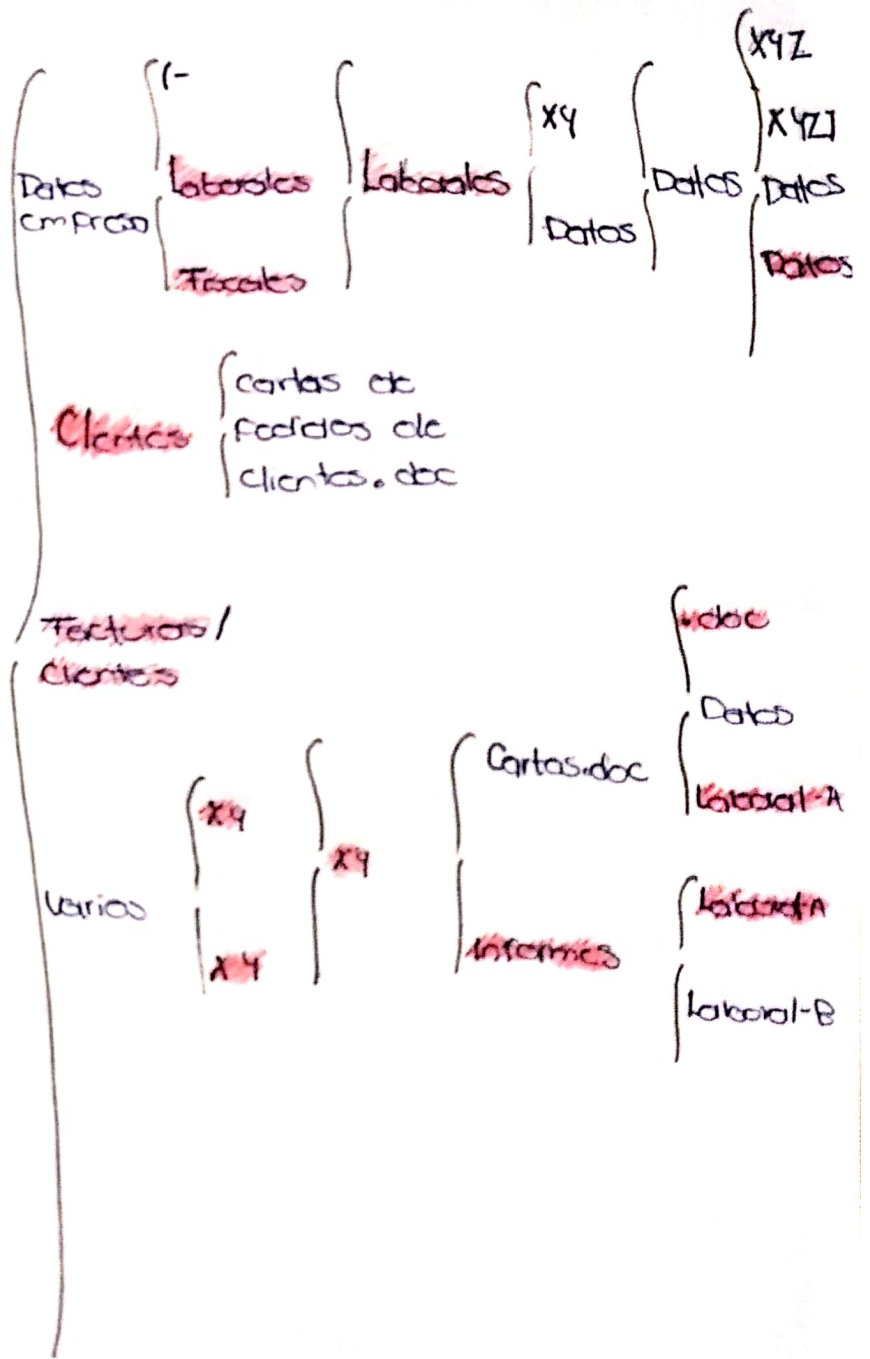 Datos
empresa
(-
Laborales
Fiscales
Laborales
XY
Datos
Datos
XYZ
XYZJ
Datos
Datos
Clientes
cartas de
pedidos de
clientes.doc
Facturas/
clientes
Varios
XY
XY
XY
Cartas.doc
.doc
Datos
Laboral-A
Informes
Laboral-A
Laboral-B